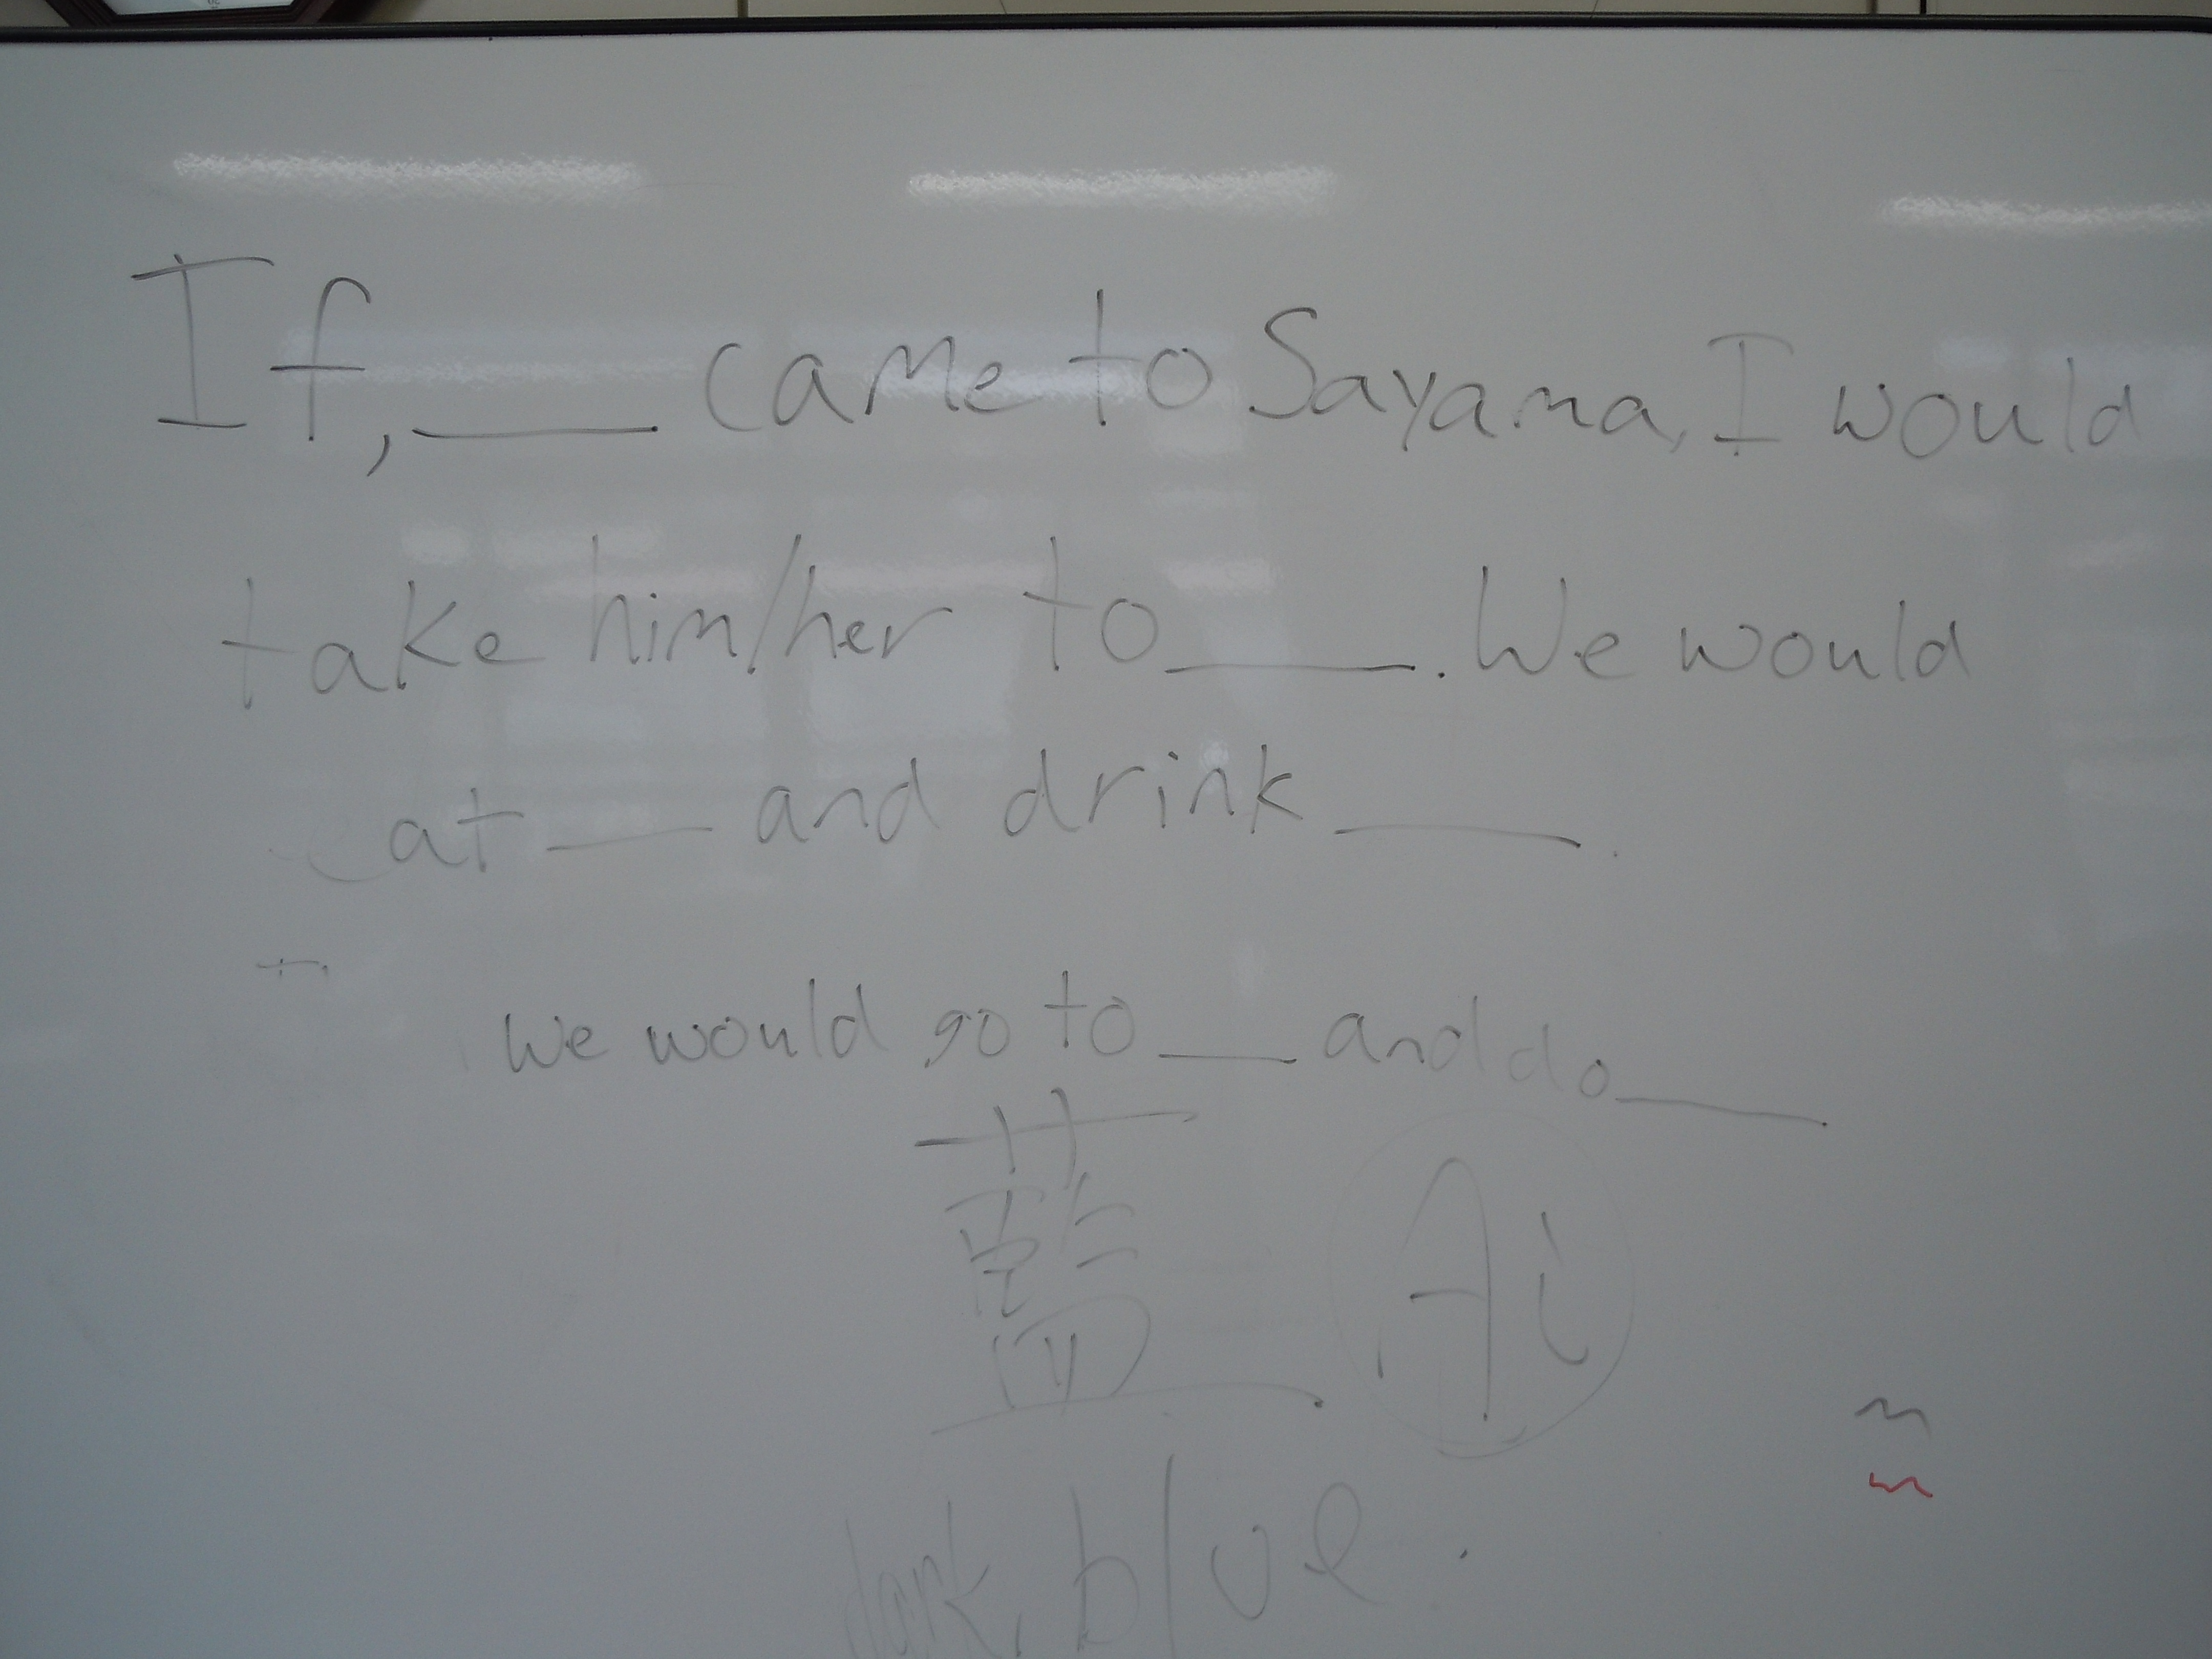 If, ____ came to Sayama, I would
take him/her to ____. We would
eat ___ and drink ____.
We would go to ___ and do ____
藍 Ai
dark, blue.